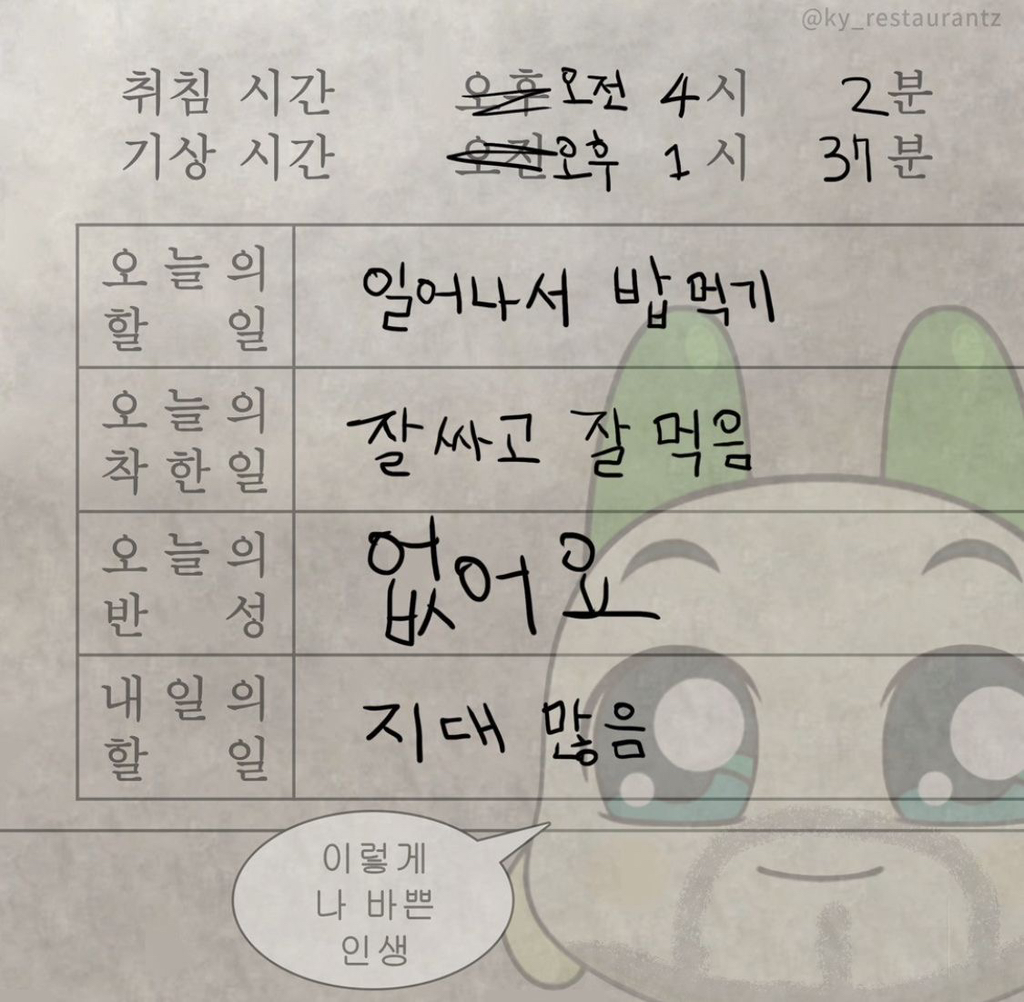 @ky_restaurantz
취침 시간 오후 오전 4시 2분
기상 시간 오전 오후 1시 37분
오늘의 할 일
일어나서 밥먹기
오늘의 착한일
잘싸고 잘 먹음
오늘의 반성
없어요
내일의 할 일
지대 많음
이렇게
나 바쁜
인생